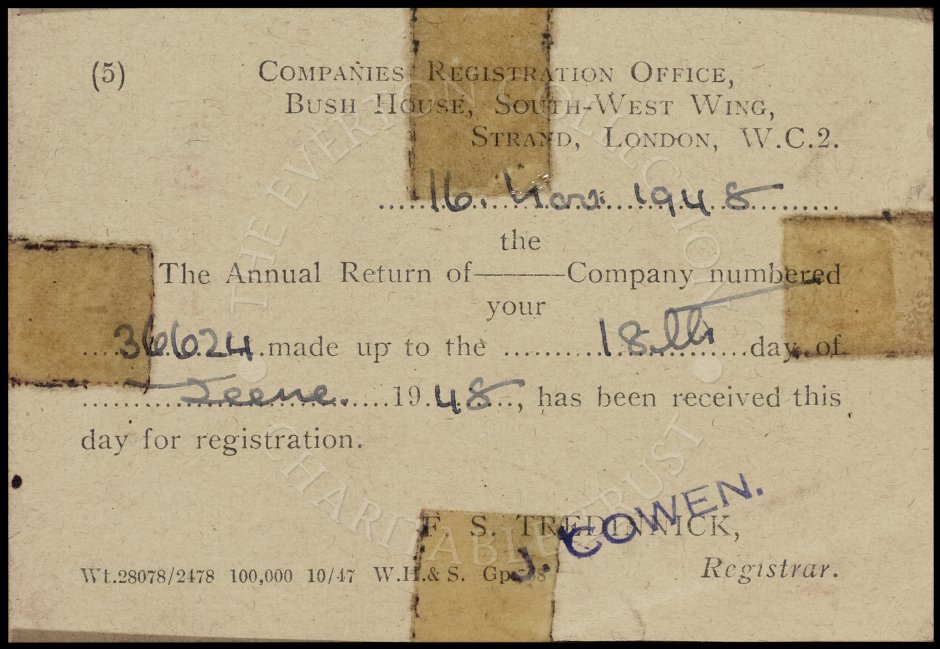 (5) COMPANIES REGISTRATION OFFICE,
BUSH HOUSE, SOUTH-WEST WING,
STRAND, LONDON, W.C.2.
16. Nov. 1948
the
The Annual Return of———Company numbered
your
36624 made up to the 18th day of
June. 1948, has been received this
day for registration.
F. S. TREDINNICK,
J. COWEN.
Wt.28078/2478 100,000 10/47 W.H.& S. Registrar.
THE EVERTON COLLECTION
CHARITABLE TRUST